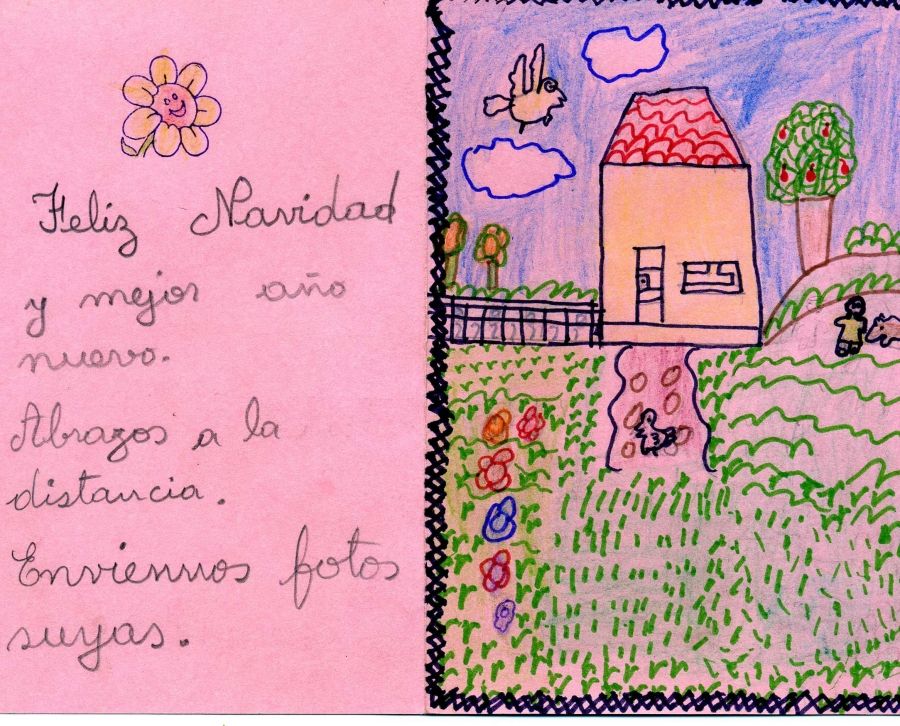 Feliz Navidad
y mejor año
nuevo.
Abrazos a la
distancia.
Enviennos fotos
suyas.